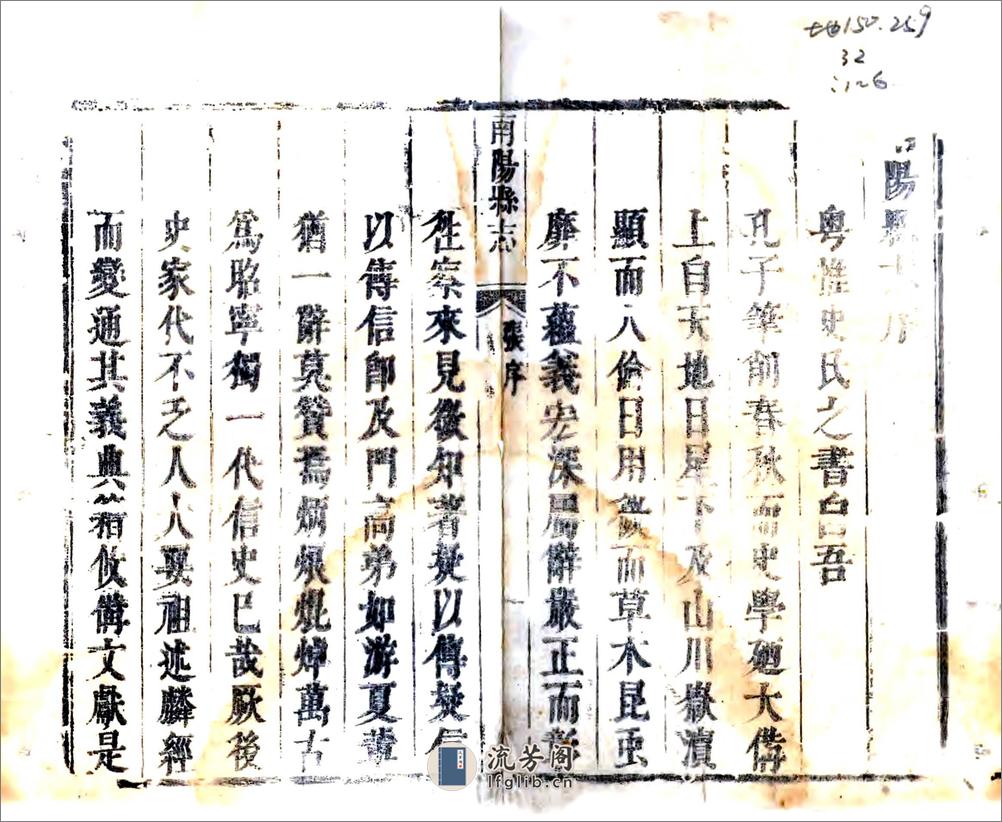 150.259
32
126
陽縣志序
粵惟史氏之書自吾
孔子筆削春秋而史學廼大偹
上自天地日星下及山川嶽瀆
顯而人倫日用微而草木昆虫
靡不蘊義宏深屬辭嚴正而彰
南陽縣志
張序
徃察來見微知著疑以傳疑信
以傳信卽及門高弟如游夏輩
猶一辭莫贊焉炳烺焜焯萬古
爲昭寧獨一代信史已哉厥後
史家代不乏人人要祖述麟經
而變通其義典籍攸備文獻是
流芳阁
lfglib.cn